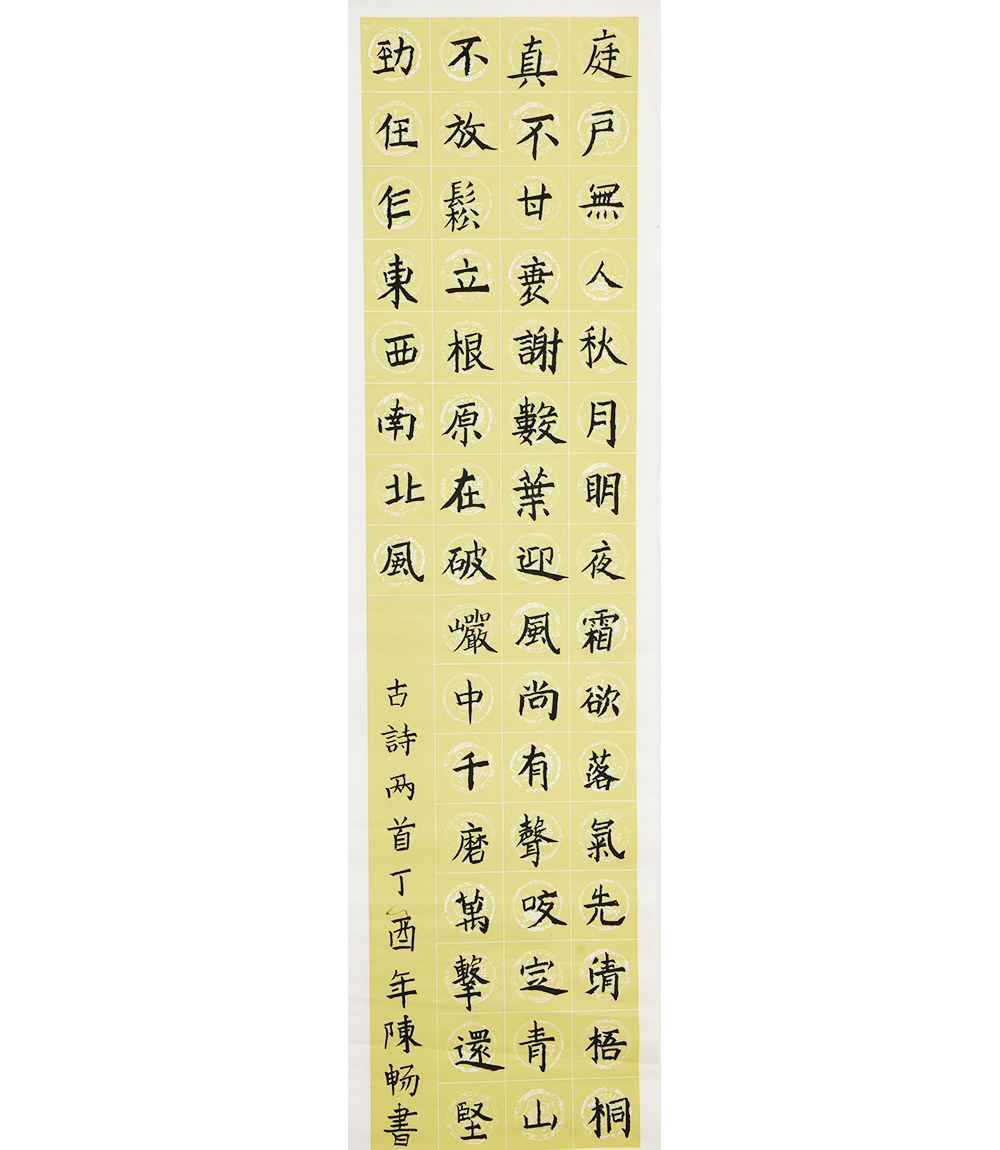 庭戶無人秋月明夜霜欲落氣先清梧桐
真不甘衰謝數葉迎風尚有聲咬定青山
不放鬆立根原在破巖中千磨萬擊還堅
勁任仨東西南北風
古詩两首丁酉年陳畅書